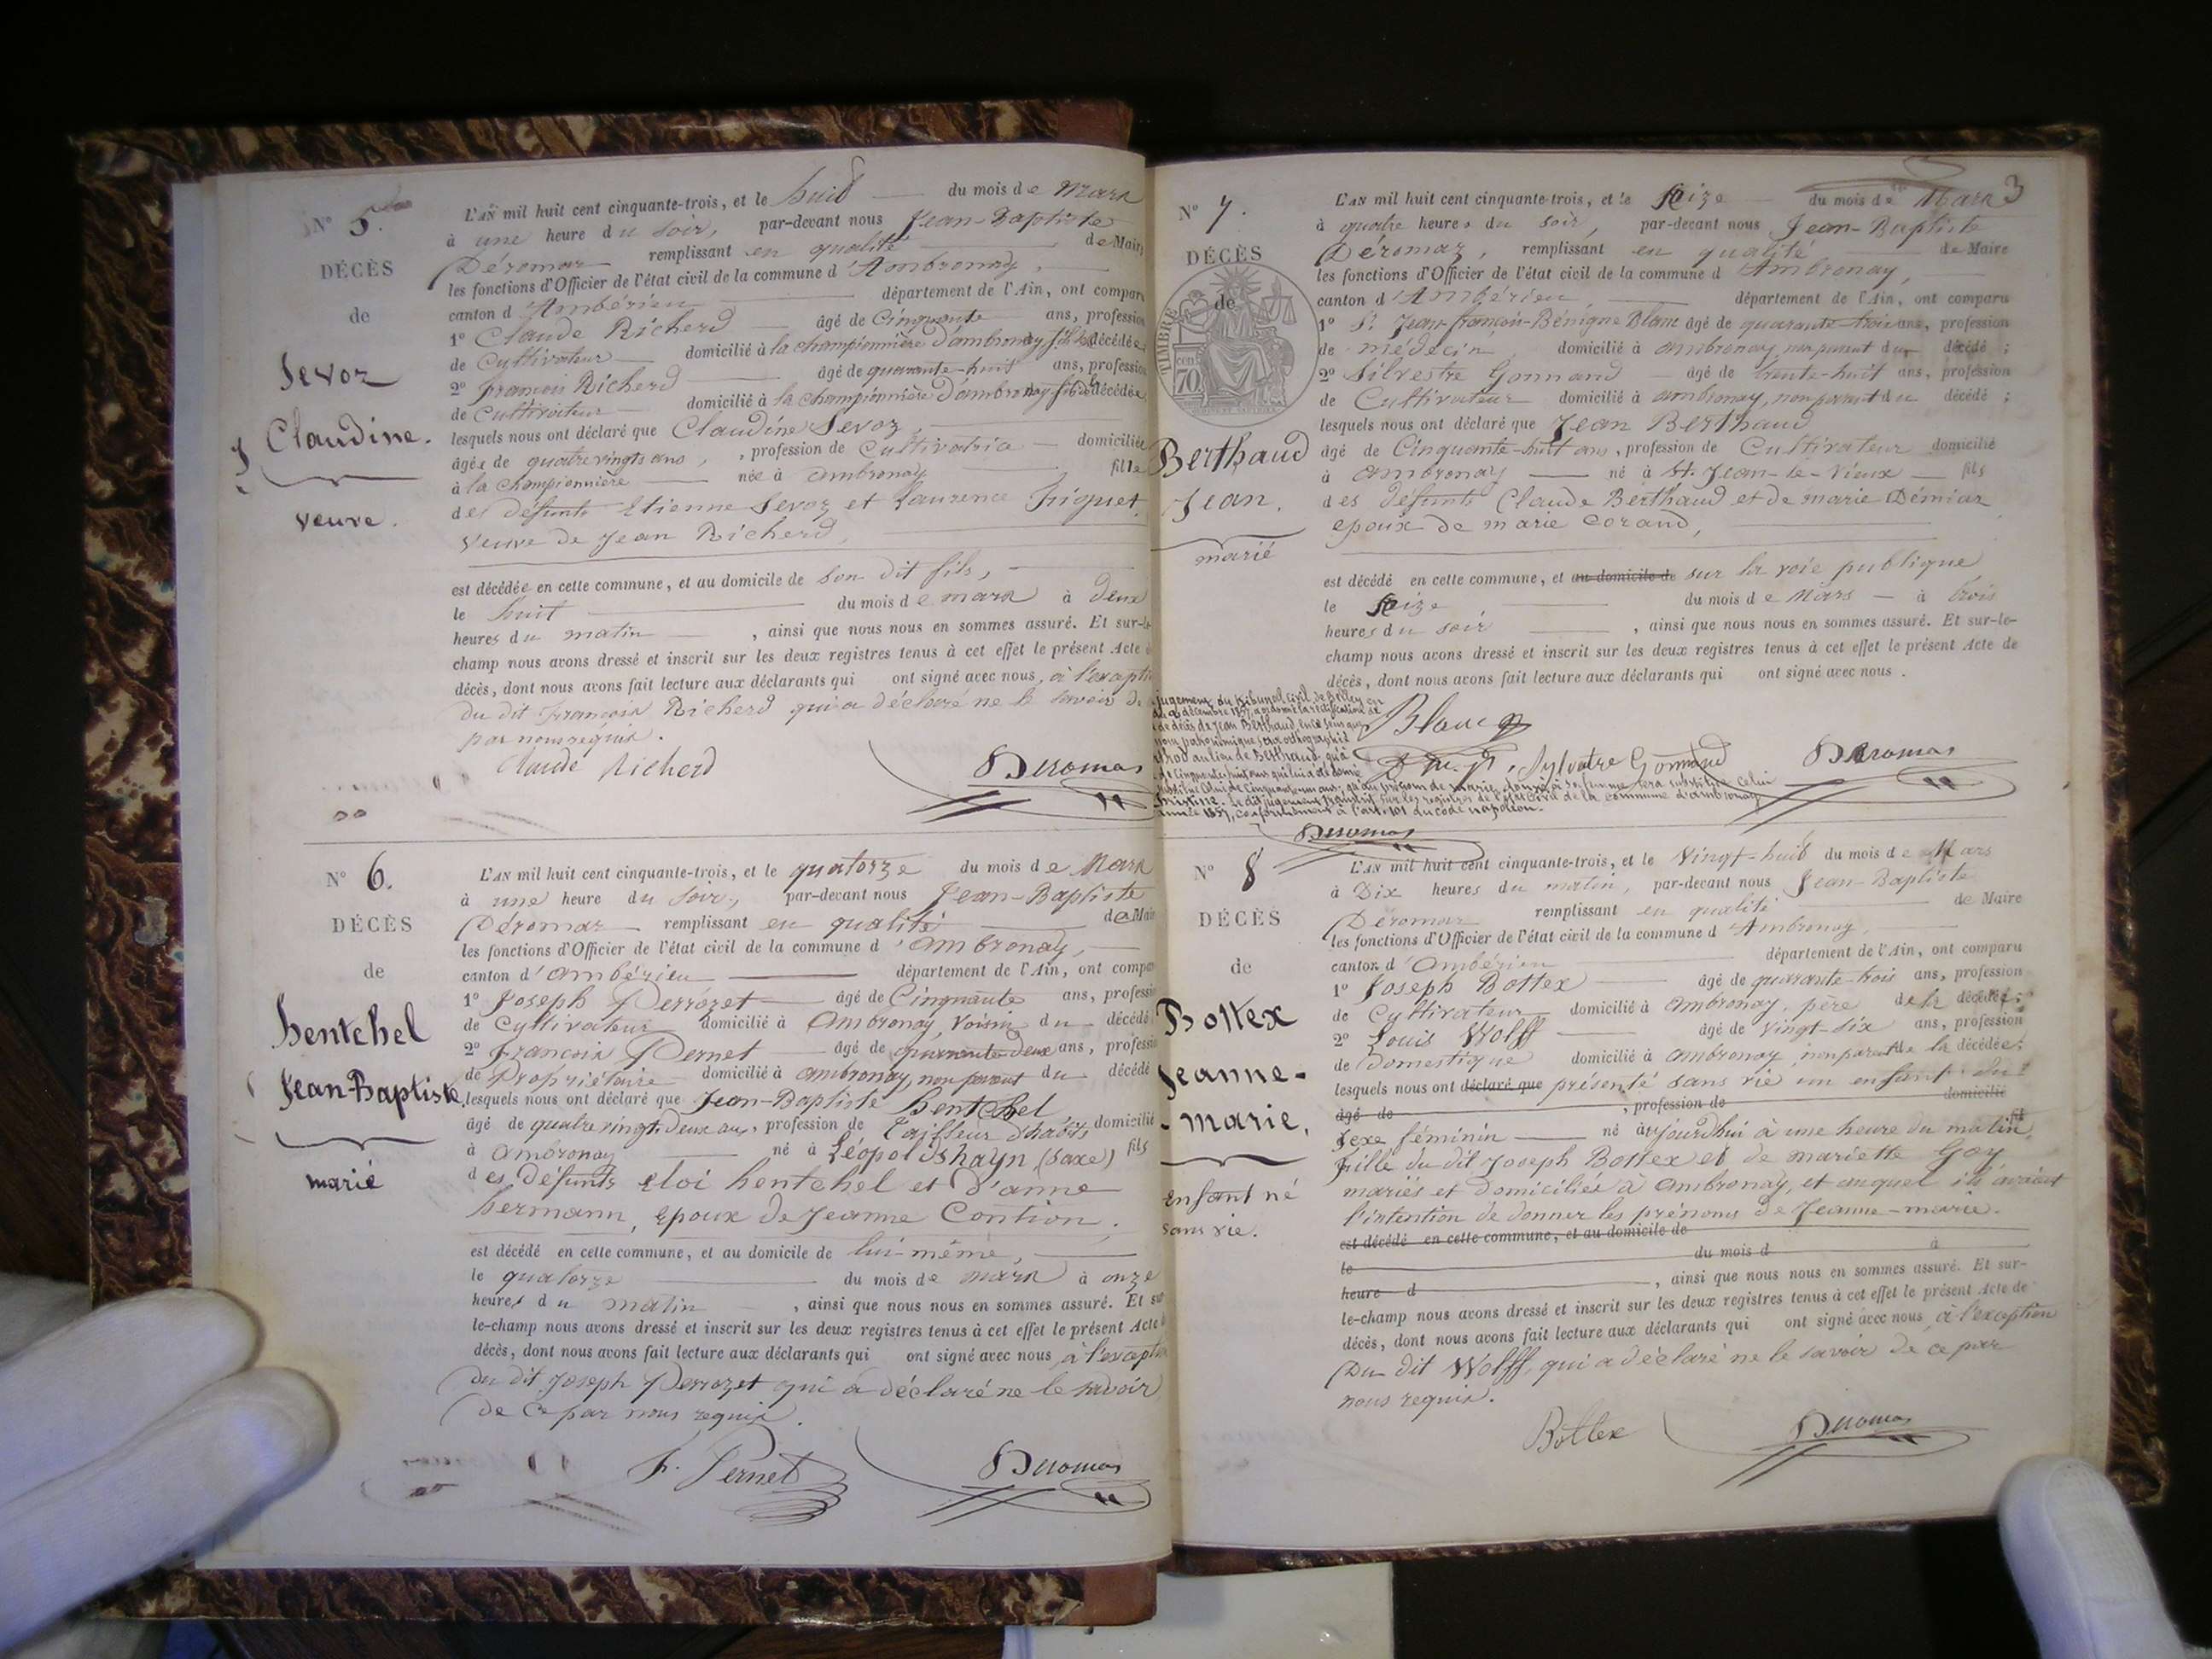 N° 5.
DÉCÈS
de
Sevoz
Claudine.
veuve.
L'AN mil huit cent cinquante-trois, et le huit du mois de Mars
à une heure du soir, par-devant nous Jean-Baptiste
Déromas remplissant en qualité de Maire
les fonctions d'Officier de l'état civil de la commune d'Ambronay,
canton d'Ambérieu département de l'Ain, ont comparu
1° Claude Richerd âgé de Cinquante ans, profession
de Cultivateur domicilié à la championnière d'ambronay fils de la décédée
2° François Richerd âgé de quarante-huit ans, profession
de Cultivateur domicilié à la championnière d'ambronay fils de la décédée
lesquels nous ont déclaré que Claudine Sevoz,
âgée de quatre vingts ans, profession de Cultivatrice domiciliée
à la Championnière née à ambronay fille
des défunts Etienne Sevoz et Laurence Friquet,
veuve de Jean Richerd,
est décédée en cette commune, et au domicile de son dit fils,
le huit du mois de mars à deux
heures du matin, ainsi que nous nous en sommes assuré. Et sur-le-
champ nous avons dressé et inscrit sur les deux registres tenus à cet effet le présent Acte de
décès, dont nous avons fait lecture aux déclarants qui ont signé avec nous, à l'excepti
du dit François Richerd qui a déclaré ne le savoir de
par nous requis.
Claude Richerd Deromas
N° 6.
DÉCÈS
de
hentchel
Jean-Baptiste.
marié
L'AN mil huit cent cinquante-trois, et le quatorze du mois de Mars
à une heure du soir, par-devant nous Jean-Baptiste
Déromas remplissant en qualité de Maire
les fonctions d'Officier de l'état civil de la commune d'ambronay,
canton d'ambérieu département de l'Ain, ont compar
1° Joseph Perrozet âgé de Cinquante ans, profession
de Cultivateur domicilié à Ambronay, voisin du décédé
2° François Pernet âgé de quarante-deux ans, profession
de Propriétaire domicilié à ambronay, non parent du décédé
lesquels nous ont déclaré que Jean-Baptiste hentchel
âgé de quatre vingt-deux ans, profession de Tailleur d'habits domicilié
à ambronay né à Léopoldshayn (saxe) fils
des défunts eloi hentchel et d'anne
hermann, epoux de Jeanne Contion,
est décédé en cette commune, et au domicile de lui-même,
le quatorze du mois de mars à onze
heures du matin, ainsi que nous nous en sommes assuré. Et sur
le-champ nous avons dressé et inscrit sur les deux registres tenus à cet effet le présent Acte de
décès, dont nous avons fait lecture aux déclarants qui ont signé avec nous, à l'excepti
du dit Joseph Perrozet qui a déclaré ne le savoir
de ce par nous requis.
F. Pernet Deromas
3
N° 7.
DÉCÈS
de
TIMBRE
70
Berthaud
Jean.
marié
L'AN mil huit cent cinquante-trois, et le seize du mois de Mars
à quatre heures du soir, par-devant nous Jean-Baptiste
Déromaz, remplissant en qualité de Maire
les fonctions d'Officier de l'état civil de la commune d'Ambronay,
canton d'Ambérieu, département de l'Ain, ont comparu
1° Sr Jean-françois-Bénigne Blanc âgé de quarante-trois ans, profession
de médecin, domicilié à ambronay, non parent du décédé;
2° Silvestre Gonnand âgé de trente-huit ans, profession
de Cultivateur domicilié à ambronay, non parent du décédé;
lesquels nous ont déclaré que Jean Berthaud
âgé de Cinquante-huit ans, profession de Cultivateur domicilié
à ambronay né à St. Jean-le-Vieux fils
des défunts Claude Berthaud et de marie Démiaz
epoux de marie Corand,
est décédé en cette commune, et au domicile de sur la voie publique
le seize du mois de Mars à trois
heures du soir, ainsi que nous nous en sommes assuré. Et sur-le-
champ nous avons dressé et inscrit sur les deux registres tenus à cet effet le présent Acte de
décès, dont nous avons fait lecture aux déclarants qui ont signé avec nous.
jugement du tribunal civil de Belley en
décembre 1857, a ordonné la rectification
de décès de Jean Berthaud, en ce sens que
nom patronimique sera orthographié
au lieu de Berthaud, qu'à
de cinquante huit ans qui lui a été donné
substitué celui de Cinquante un ans, qu'au prénom de marie, donné à sa femme sera substitué celui
Le dit jugement transcrit sur les registres de l'état civil de la commune d'ambronay
année 1857, conformément à l'art. 101 du code napoléon.
Deromas
Blanc
Sylvestre Gonnand Deromas
N° 8
DÉCÈS
de
Bottex
Jeanne-
-marie,
enfant né
sans vie.
L'AN mil huit cent cinquante-trois, et le vingt-huit du mois de Mars
à Dix heures du matin, par-devant nous Jean-Baptiste
Déromaz remplissant en qualité de Maire
les fonctions d'Officier de l'état civil de la commune d'Ambronay,
canton d'ambérieu département de l'Ain, ont comparu
1° Joseph Bottex âgé de quarante-trois ans, profession
de Cultivateur domicilié à ambronay, père de la décédée;
2° Louis Wolff âgé de vingt-six ans, profession
de domestique domicilié à ambronay, non parent de la décédée;
lesquels nous ont déclaré que présenté sans vie un enfant du
âgé de, profession de domicilié
sexe féminin né aujourdhui à une heure du matin, fil
fille du dit Joseph Bottex et de mariette Goy
mariés et domiciliés à ambronay, et auquel ils avaient
l'intention de donner les prénoms de Jeanne-marie.
est décédé en cette commune, et au domicile de
le du mois d à
heure d, ainsi que nous nous en sommes assuré. Et sur-
le-champ nous avons dressé et inscrit sur les deux registres tenus à cet effet le présent Acte de
décès, dont nous avons fait lecture aux déclarants qui ont signé avec nous, à l'exception
du dit Wolff, qui a déclaré ne le savoir de ce par
nous requis.
Bottex Deromas